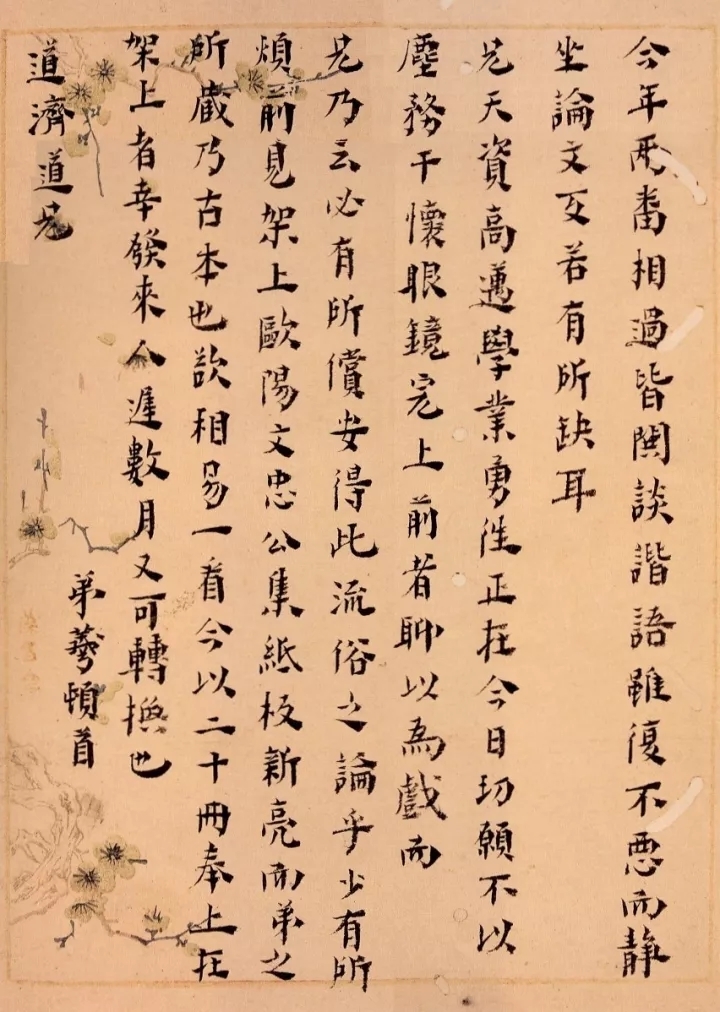 今年兩番相過皆閒談諧語雖復不惡而靜
坐論文反若有所缺耳
兄天資高邁學業勇進正在今日切願不以
塵務干懷眼鏡完上前者聊以為戲而
兄乃云必有所償安得此流俗之論乎少有所
煩前見架上歐陽文忠公集紙板新亮而弟之
所蔵乃古本也欲相易一看今以二十冊奉上在
架上者幸發來人遲數月又可轉換也
弟 頓首
道濟道兄